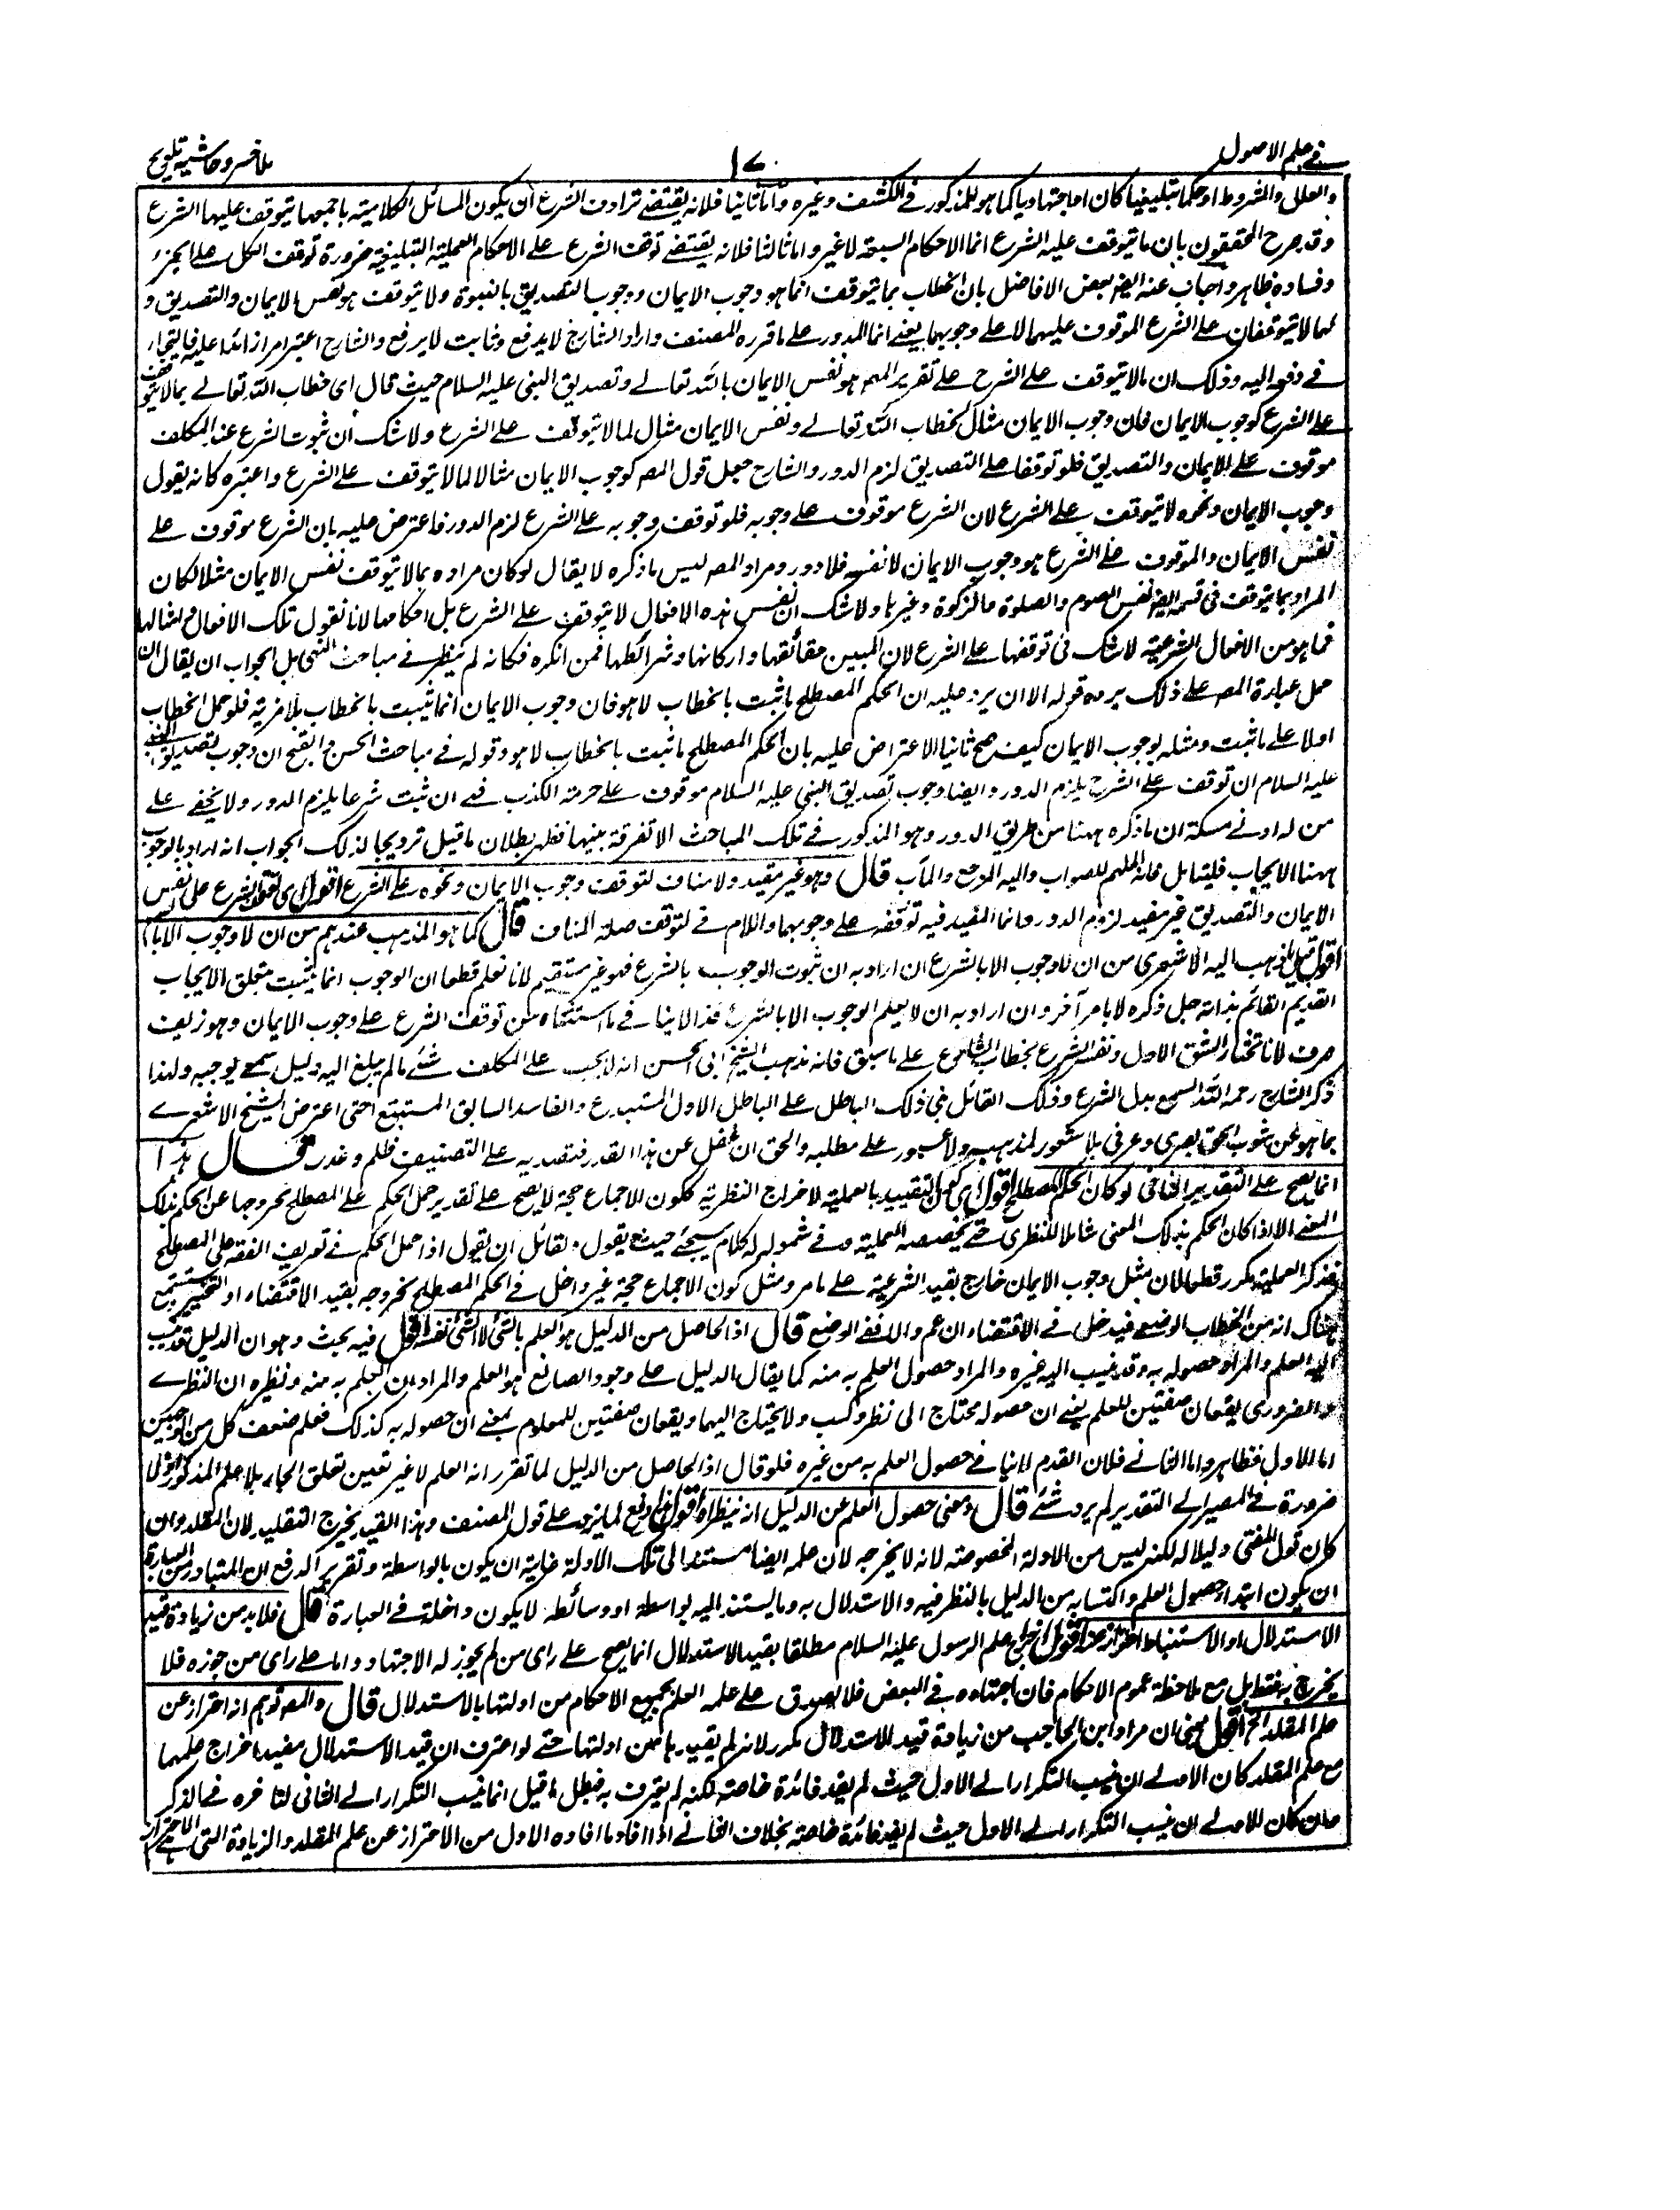 في علم الاصول
١٧
ملا خسرو حاشية تلويح
والعلل والشروط او حكما تبليغيا كان او اجتهاديا كما هو المذكور في الكشف وغيره واما ثانيا فلانه يقتضي ترادف الشرع ان يكون المسائل الكلامية باجمعها يتوقف عليها الشرع
وقد صرح المحققون بان ما يتوقف عليه الشرع انما الاحكام السبعة لا غير واما ثالثا فلانه يقتضي توقف الشرع على الاحكام العملية التبليغية ضرورة توقف الكل على الجزء
وفساده ظاهر واجاب عنه ايضا بعض الافاضل بان الخطاب بما يتوقف انما هو وجوب الايمان ووجوب التصديق بالنبوة ولا يتوقف هو نفس الايمان والتصديق و
هما لا يتوقفان على الشرع الموقوف عليهما لا على وجوبهما يعني انما الدور على ما قرره المصنف واراد الشارح لا يدفع وثابت لا يرفع والشارح اعتبر امرا زائدا عليه فالتجاء
في دفعه اليه وذلك ان ما لا يتوقف على الشرح على تقرير المص هو نفس الايمان بالله تعالى وتصديق النبي عليه السلام حيث قال اي خطاب الله تعالى بما لا يتوقف
على الشرع كوجوب الايمان فان وجوب الايمان مثال لخطاب الله تعالى ونفس الايمان مثال لما لا يتوقف على الشرع ولا شك ان ثبوت الشرع عند المكلف
موقوف على الايمان والتصديق فلو توقفا على التصديق لزم الدور والشارح جعل قول المص كوجوب الايمان مثالا لما لا يتوقف على الشرع واعتبره كانه يقول
وجوب الايمان ونحوه لا يتوقف على الشرع لان الشرع موقوف على وجوبه فلو توقف وجوبه على الشرع لزم الدور فاعترض عليه بان الشرع موقوف على
نفس الايمان والموقوف على الشرع هو وجوب الايمان لا نفسه فلا دور ومراد المص ليس ما ذكره لا يقال لو كان مراده بما لا يتوقف نفس الايمان مثلا لكان
المراد بما يتوقف في قسمه ايضا نفس الصوم والصلوة والزكوة وغيرها ولا شك ان نفس هذه الافعال لا يتوقف على الشرع بل احكامها لانا نقول تلك الافعال وامثالها
فما هو من الافعال الشرعية لا شك في توقفها على الشرع لان المبين حقائقها واركانها وشرائطها فمن انكره فكانه لم ينظر في مباحث النهي بل الجواب ان يقال ان
حمل عبارة المص على ذلك يرده قوله الا ان يرد عليه ان الحكم المصطلح ما ثبت بالخطاب لا هو فان وجوب الايمان انما يثبت بالخطاب بلا مرية فلو حمل الخطاب
اولا على ما ثبت ومثله بوجوب الايمان كيف صح ثانيا الاعتراض عليه بان الحكم المصطلح ما ثبت بالخطاب لا هو وقوله في مباحث الحسن والقبح ان وجوب تصديق النبي
عليه السلام ان توقف على الشرع يلزم الدور وايضا وجوب تصديق النبي عليه السلام موقوف على حرمة الكذب فهي ان ثبت شرعا يلزم الدور ولا يخفى على
من له ادنى مسكة ان ما ذكره ههنا من طريق الدور وهو المذكور في تلك المباحث الا تفرقة بينهما فظهر بطلان ما قيل ترويجا لذلك الجواب انه اراد بالوجوب
ههنا الايجاب فليتامل فانه الملهم للصواب واليه المرجع والمآب قال وهو غير مفيد ولا مناف لتوقف وجوب الايمان ونحوه على الشرع اقول اي توقف الشرع على نفس
الايمان والتصديق غير مفيد لزوم الدور وانما المفيد فيه توقفه على وجوبهما واللام في لتوقف صلة المناف قال كما هو المذهب عندهم من ان لا وجوب الا بالسمع
اقول قيل ما ذهب اليه الاشعري من ان لا وجوب الا بالشرع ان اراد به ان ثبوت الوجوب بالشرع فهو غير مستقيم لانا نعلم قطعا ان الوجوب انما يثبت بتعلق الايجاب
القديم القائم بذاته جل ذكره لا بامر آخر وان اراد به ان لا يعلم الوجوب الا بالشرع فذا لا ينافي ما استثناه من توقف الشرع على وجوب الايمان وهو زيف
صرف لانا نختار الشق الاول ونفسر الشرع بخطاب الشارع على ما سبق فانه مذهب الشيخ ابي الحسن انه لا يجب على المكلف شئ ما لم يبلغ اليه دليل سمعي يوجبه ولهذا
ذكر الشارح رحمه الله السمع بدل الشرع وذلك القائل بنى ذلك الباطل على الباطل الاول المستبدع والفاسد السابق المستتبع حتى اعترض الشيخ الاشعري
بما هو عن شوب الحق بصري وعرفي بلا شعور لمذهبه ولا عبور على مطلبه والحق ان الغفل عن هذا القدر فتصديه على التصنيف ظلم وغدر قال هذا
انما يصح على التقدير الثاني لو كان الحكم المصطلح اقول اي كون التقييد بالعملية لاخراج النظرية ككون الاجماع حجة لا يصح على تقدير حمل الحكم على المصطلح لخروجها عن الحكم بذلك
المعنى الا اذا كان الحكم بذلك المعنى شاملا للنظري حتى يخصصه العملية وفي شموله له كلام سيجئ حيث يقول ولقائل ان يقول اذا حمل الحكم في تعريف الفقه على المصطلح
فذكر العملية مكرر قطعا لان مثل وجوب الايمان خارج بقيد الشرعية على ما مر ومثل كون الاجماع حجة غير داخل في الحكم المصطلح لخروجه بقيد الاقتضاء او التخيير وستسمع
هناك انه من الخطاب الوضعي فيدخل في الاقتضاء ان عم والا ففي الوضع قال اذ الحاصل من الدليل هو العلم بالشئ لا الشئ نفسه اقول فيه بحث وهو ان الدليل قد ينسب
اليه العلم والمراد حصوله به وقد ينسب اليه غيره والمراد حصول العلم به منه كما يقال الدليل على وجود الصانع هو العلم والمراد ان العلم به منه ونظيره ان النظري
والضروري يقعان صفتين للعلم يعني ان حصوله محتاج الى نظر وكسب ولا يحتاج اليهما ويقعان صفتين للمعلوم بمعنى ان حصوله به كذلك فعلم ضعف كل من الوجهين
اما الاول فظاهر واما الثاني فلان القدم لا ينافي حصول العلم به من غيره فلو قال اذ الحاصل من الدليل لما تقرر انه العلم لا غير تعين تعلق الجار بلا علم المذكور اولا
ضرورة في المصير الى التقدير لم يرد شئ قال ومعنى حصول العلم من الدليل انه ينظر اه اقول هذا دفع لما يرد على قول المصنف وهذا القيد يخرج التقليد لان المقلد وان
كان قول المفتي دليلا له لكنه ليس من الادلة المخصوصة لانه لا يخرجه لان علمه ايضا مستند الى تلك الادلة غايته ان يكون بالواسطة وتقرير الدفع ان المتبادر من العبارة
ان يكون ابتداء حصول العلم واكتسابه من الدليل بالنظر فيه والاستدلال به وما يستند اليه بواسطة او وسائط لا يكون داخلة في العبارة قال فلا بد من زيادة قيد
الاستدلال او الاستنباط احترازا عنه اقول اخراج علم الرسول عليه السلام مطلقا بقيد الاستدلال انما يصح على راى من لم يجوز له الاجتهاد واما على راى من جوزه فلا
يخرج به فقط بل مع ملاحظة عموم الاحكام فان اجتهاده في البعض فلا يصدق على علمه العلم بجميع الاحكام من ادلتها بالاستدلال قال والمص توهم انه احتراز عن
علم المقلد الخ اقول يعني ان مراد ابن الحاجب من زيادة قيد الاستدلال مكرر لانه لم يقيد بامن ادلتها حتى لو اعترف ان قيد الاستدلال مفيد اخراج علمهما
مع علم المقلد كان الاولى ان ينسب التكرار الى الاول حيث لم يفد فائدة خاصة لكنه لم يعترف به فبطل ما قيل انما ينسب التكرار الى الثاني لتاخره في الذكر
وان كان الاولى ان ينسب التكرار الى الاول حيث لم يفد فائدة خاصة بخلاف الثاني اذا افاد ما افاده الاول من الاحتراز عن علم المقلد والزيادة التي هي الاحتراز